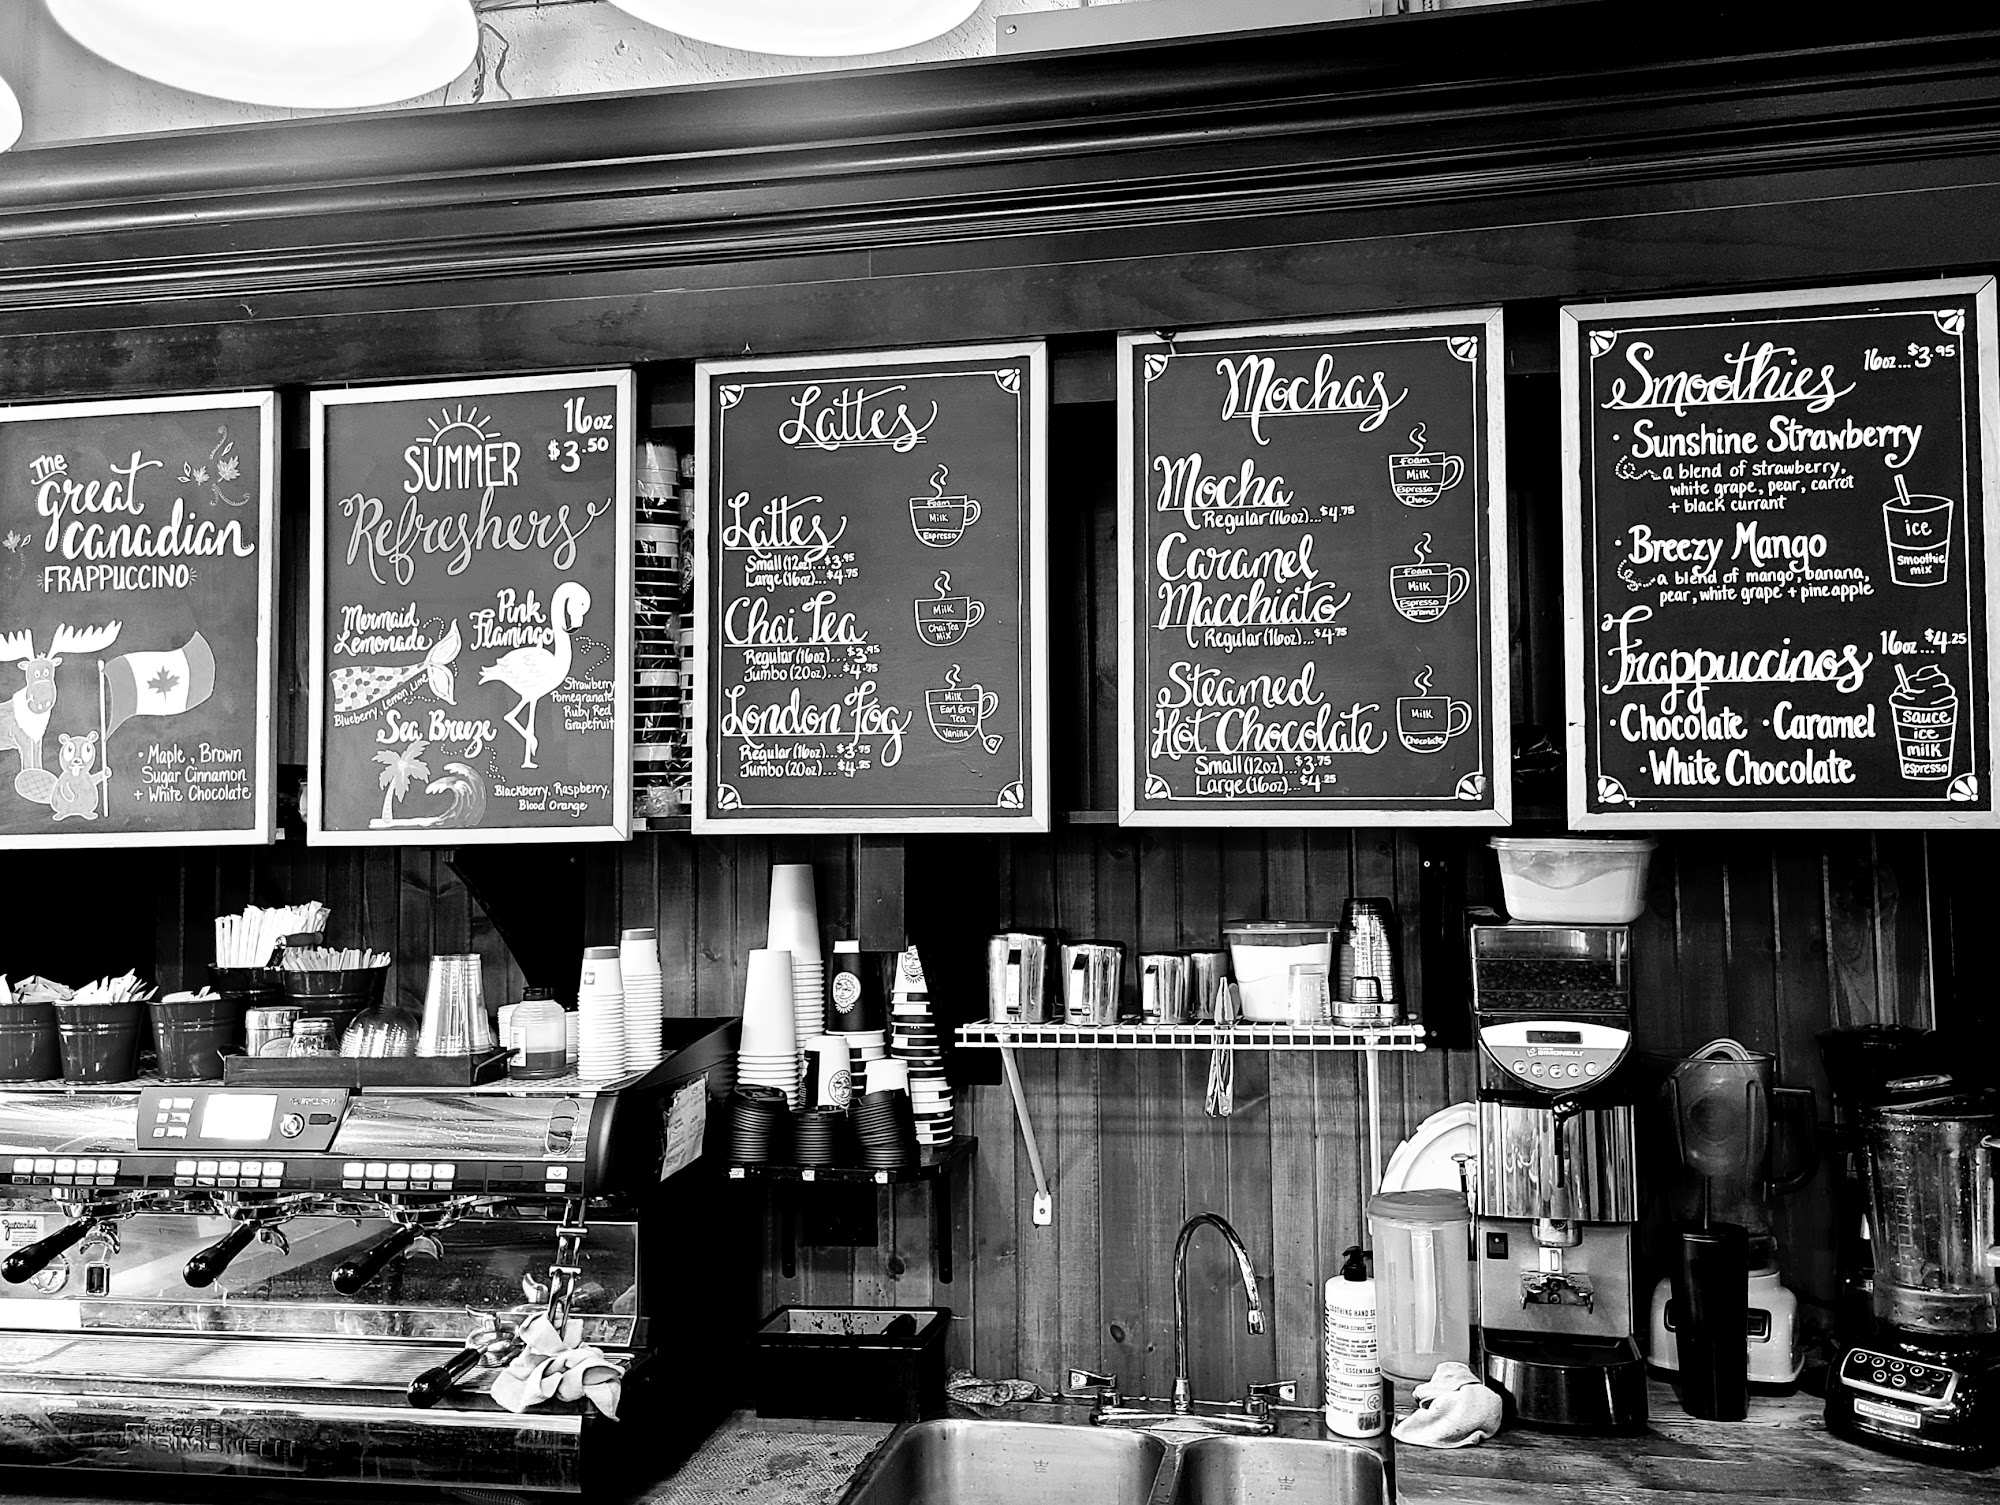 The
great
canadian
FRAPPUCCINO
• Maple, Brown
Sugar Cinnamon
+ White Chocolate
16oz
$3.50
SUMMER
Refreshers
Mermaid
Lemonade
Blueberry, Lemon, Lime
Pink
Flamingo
Strawberry
Pomegranate
Ruby Red
Grapefruit
Sea Breeze
Blackberry, Raspberry,
Blood Orange
Lattes
Lattes
Small (12oz)...$3.95
Large (16oz)...$4.75
Foam
Milk
Espresso
Chai Tea
Regular (16oz)...$3.95
Jumbo (20oz)...$4.75
Milk
Chai Tea
Mix
London Fog
Regular (16oz)...$3.75
Jumbo (20oz)...$4.25
Milk
Earl Grey
Tea
Vanilla
Mochas
Mocha
Regular (16oz)...$4.75
Foam
Milk
Espresso
Choc.
Caramel
Macchiato
Regular (16oz)...$4.75
Foam
Milk
Espresso
Caramel
Steamed
Hot Chocolate
Small (12oz)...$3.75
Large (16oz)...$4.25
Milk
Chocolate
Smoothies
16oz...$3.95
• Sunshine Strawberry
a blend of strawberry,
white grape, pear, carrot
+ black currant
• Breezy Mango
a blend of mango, banana,
pear, white grape + pineapple
ice
Smoothie
mix
Frappuccinos
16oz...$4.25
• Chocolate • Caramel
• White Chocolate
sauce
ice
milk
espresso
SIMONELLI
SIMONELLI
KitchenAid